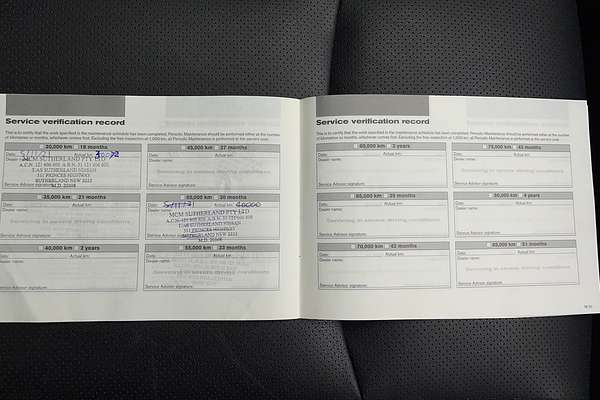 Service verification record
This is to certify that the work specified in the maintenance schedule has been completed. Periodic Maintenance should be performed either at the number
of kilometres or months, whichever comes first. Excluding the free inspection at 1,000 km, all Periodic Maintenance is performed at the owners cost.
30,000 km 18 months
Date: 5/11/21 Actual km:
Dealer name:
MCM SUTHERLAND PTY LTD
SUTHERLAND NSW 2232
Service Advisor signature:
45,000 km 27 months
Date: Actual km:
Dealer name:
Servicing in severe driving conditions
Service Advisor signature:
35,000 km 21 months
Date: Actual km:
Dealer name:
Servicing in severe driving conditions
Service Advisor signature:
30 months
Date: Actual km: 40000
Dealer name:
MCM SUTHERLAND PTY LTD
SUTHERLAND NSW 2232
Service Advisor signature:
40,000 km 2 years
Date: Actual km:
Dealer name:
Service Advisor signature:
55,000 km 33 months
Date: Actual km:
Dealer name:
Servicing in severe driving conditions
Service Advisor signature:
Service verification record
This is to certify that the work specified in the maintenance schedule has been completed. Periodic Maintenance should be performed either at the number
of kilometres or months, whichever comes first. Excluding the free inspection at 1,000 km, all Periodic Maintenance is performed at the owners cost.
60,000 km 3 years
Date: Actual km:
Dealer name:
Service Advisor signature:
75,000 km 45 months
Date: Actual km:
Dealer name:
Servicing in severe driving conditions
Service Advisor signature:
65,000 km 39 months
Date: Actual km:
Dealer name:
Servicing in severe driving conditions
Service Advisor signature:
4 years
Date: Actual km:
Dealer name:
Service Advisor signature:
70,000 km 42 months
Date: Actual km:
Dealer name:
Service Advisor signature:
51 months
Date: Actual km:
Dealer name:
Servicing in severe driving conditions
Service Advisor signature: